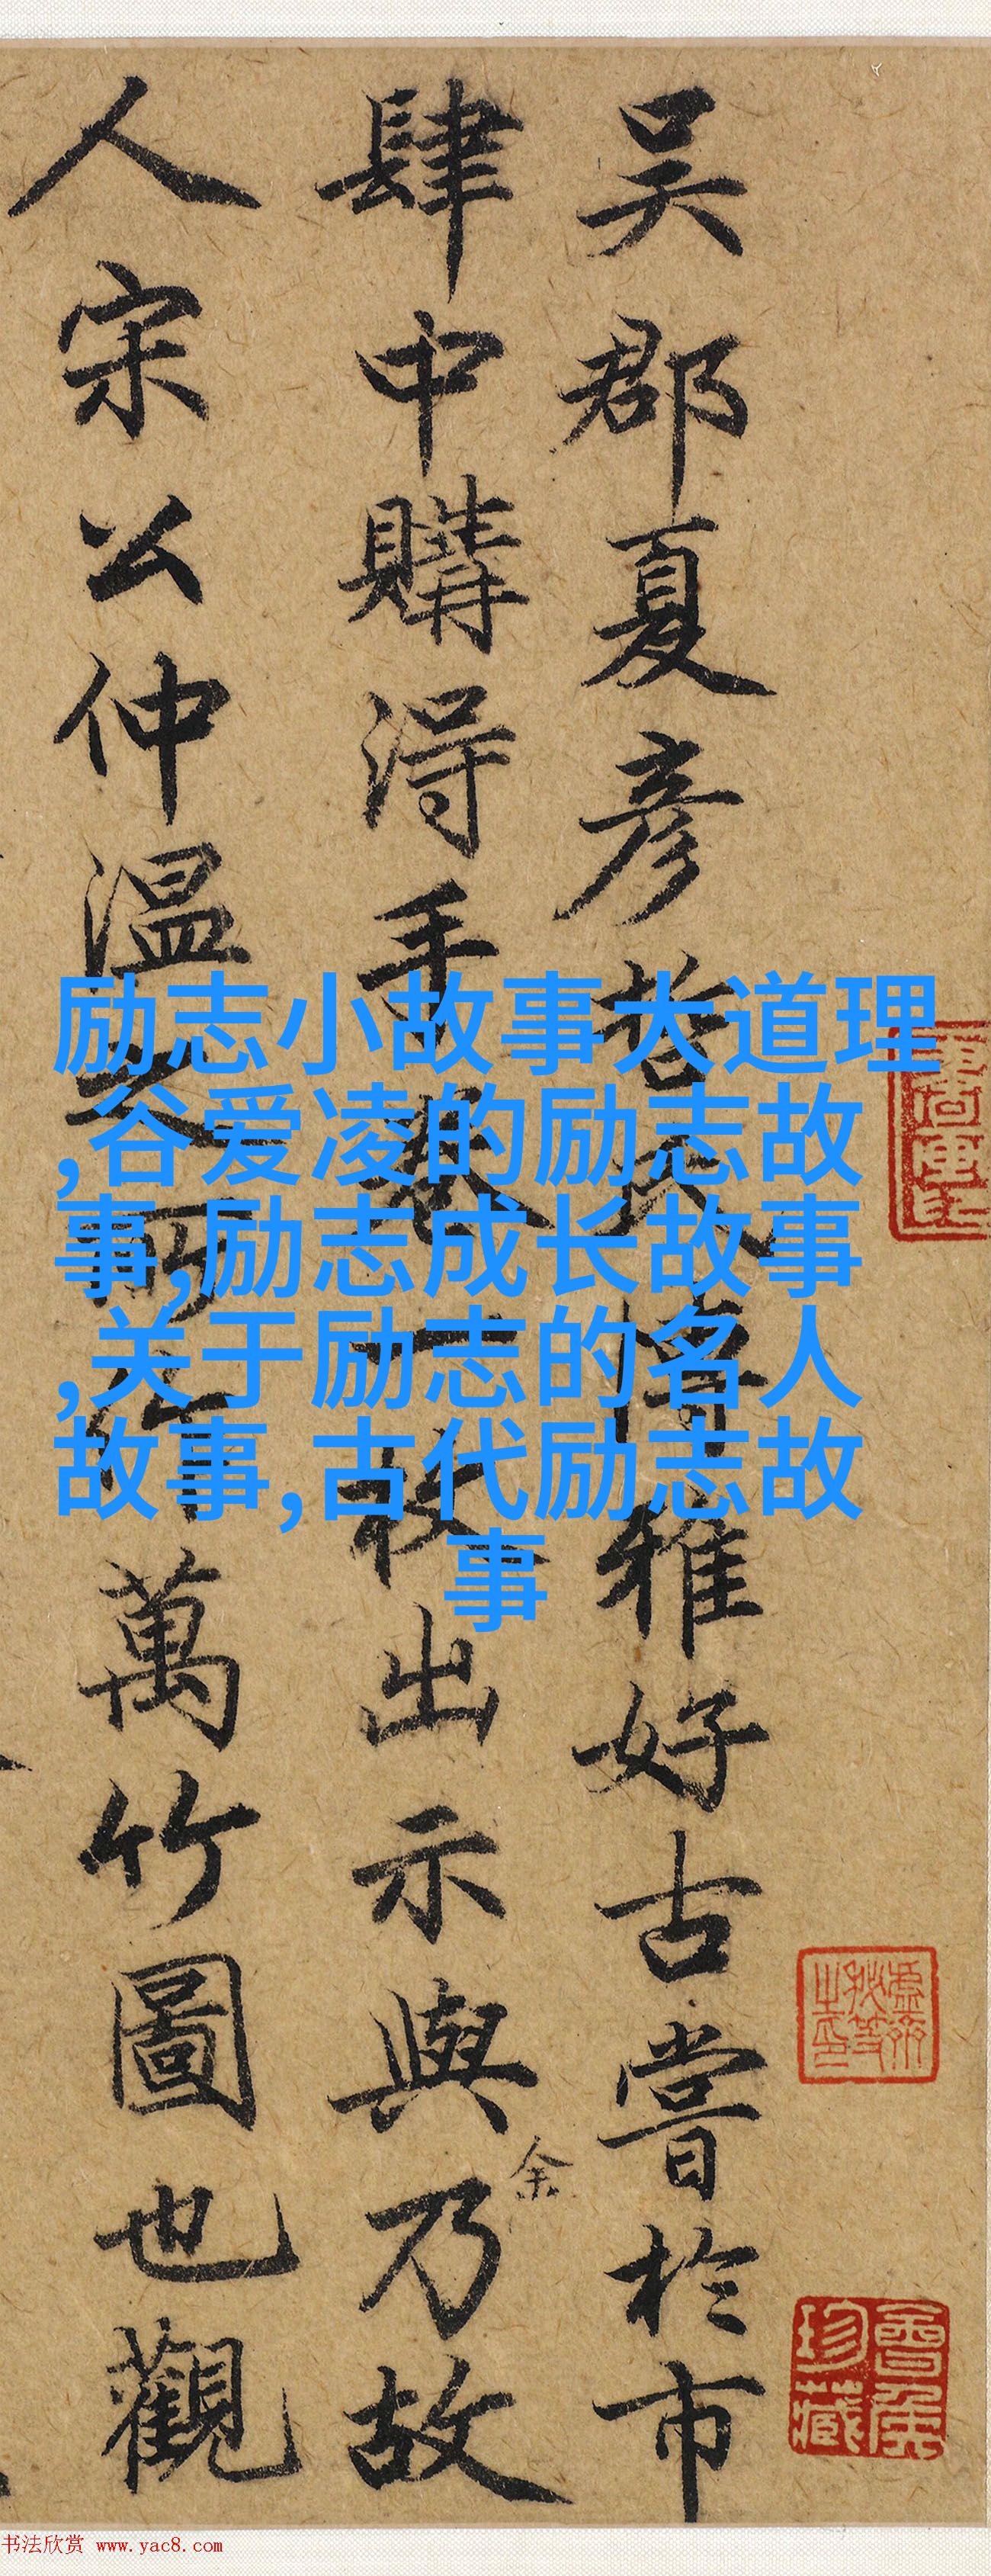 吴郡夏彦哲氏博雅好古嘗於市
肆中購得手卷一枚出示與余乃故
人宋公仲温之所作萬竹圖也觀
励志小故事大道理
,谷爱凌的励志故
事,励志成长故事
,关于励志的名人
故事,古代励志故
事
书法欣赏 www.yac8.com